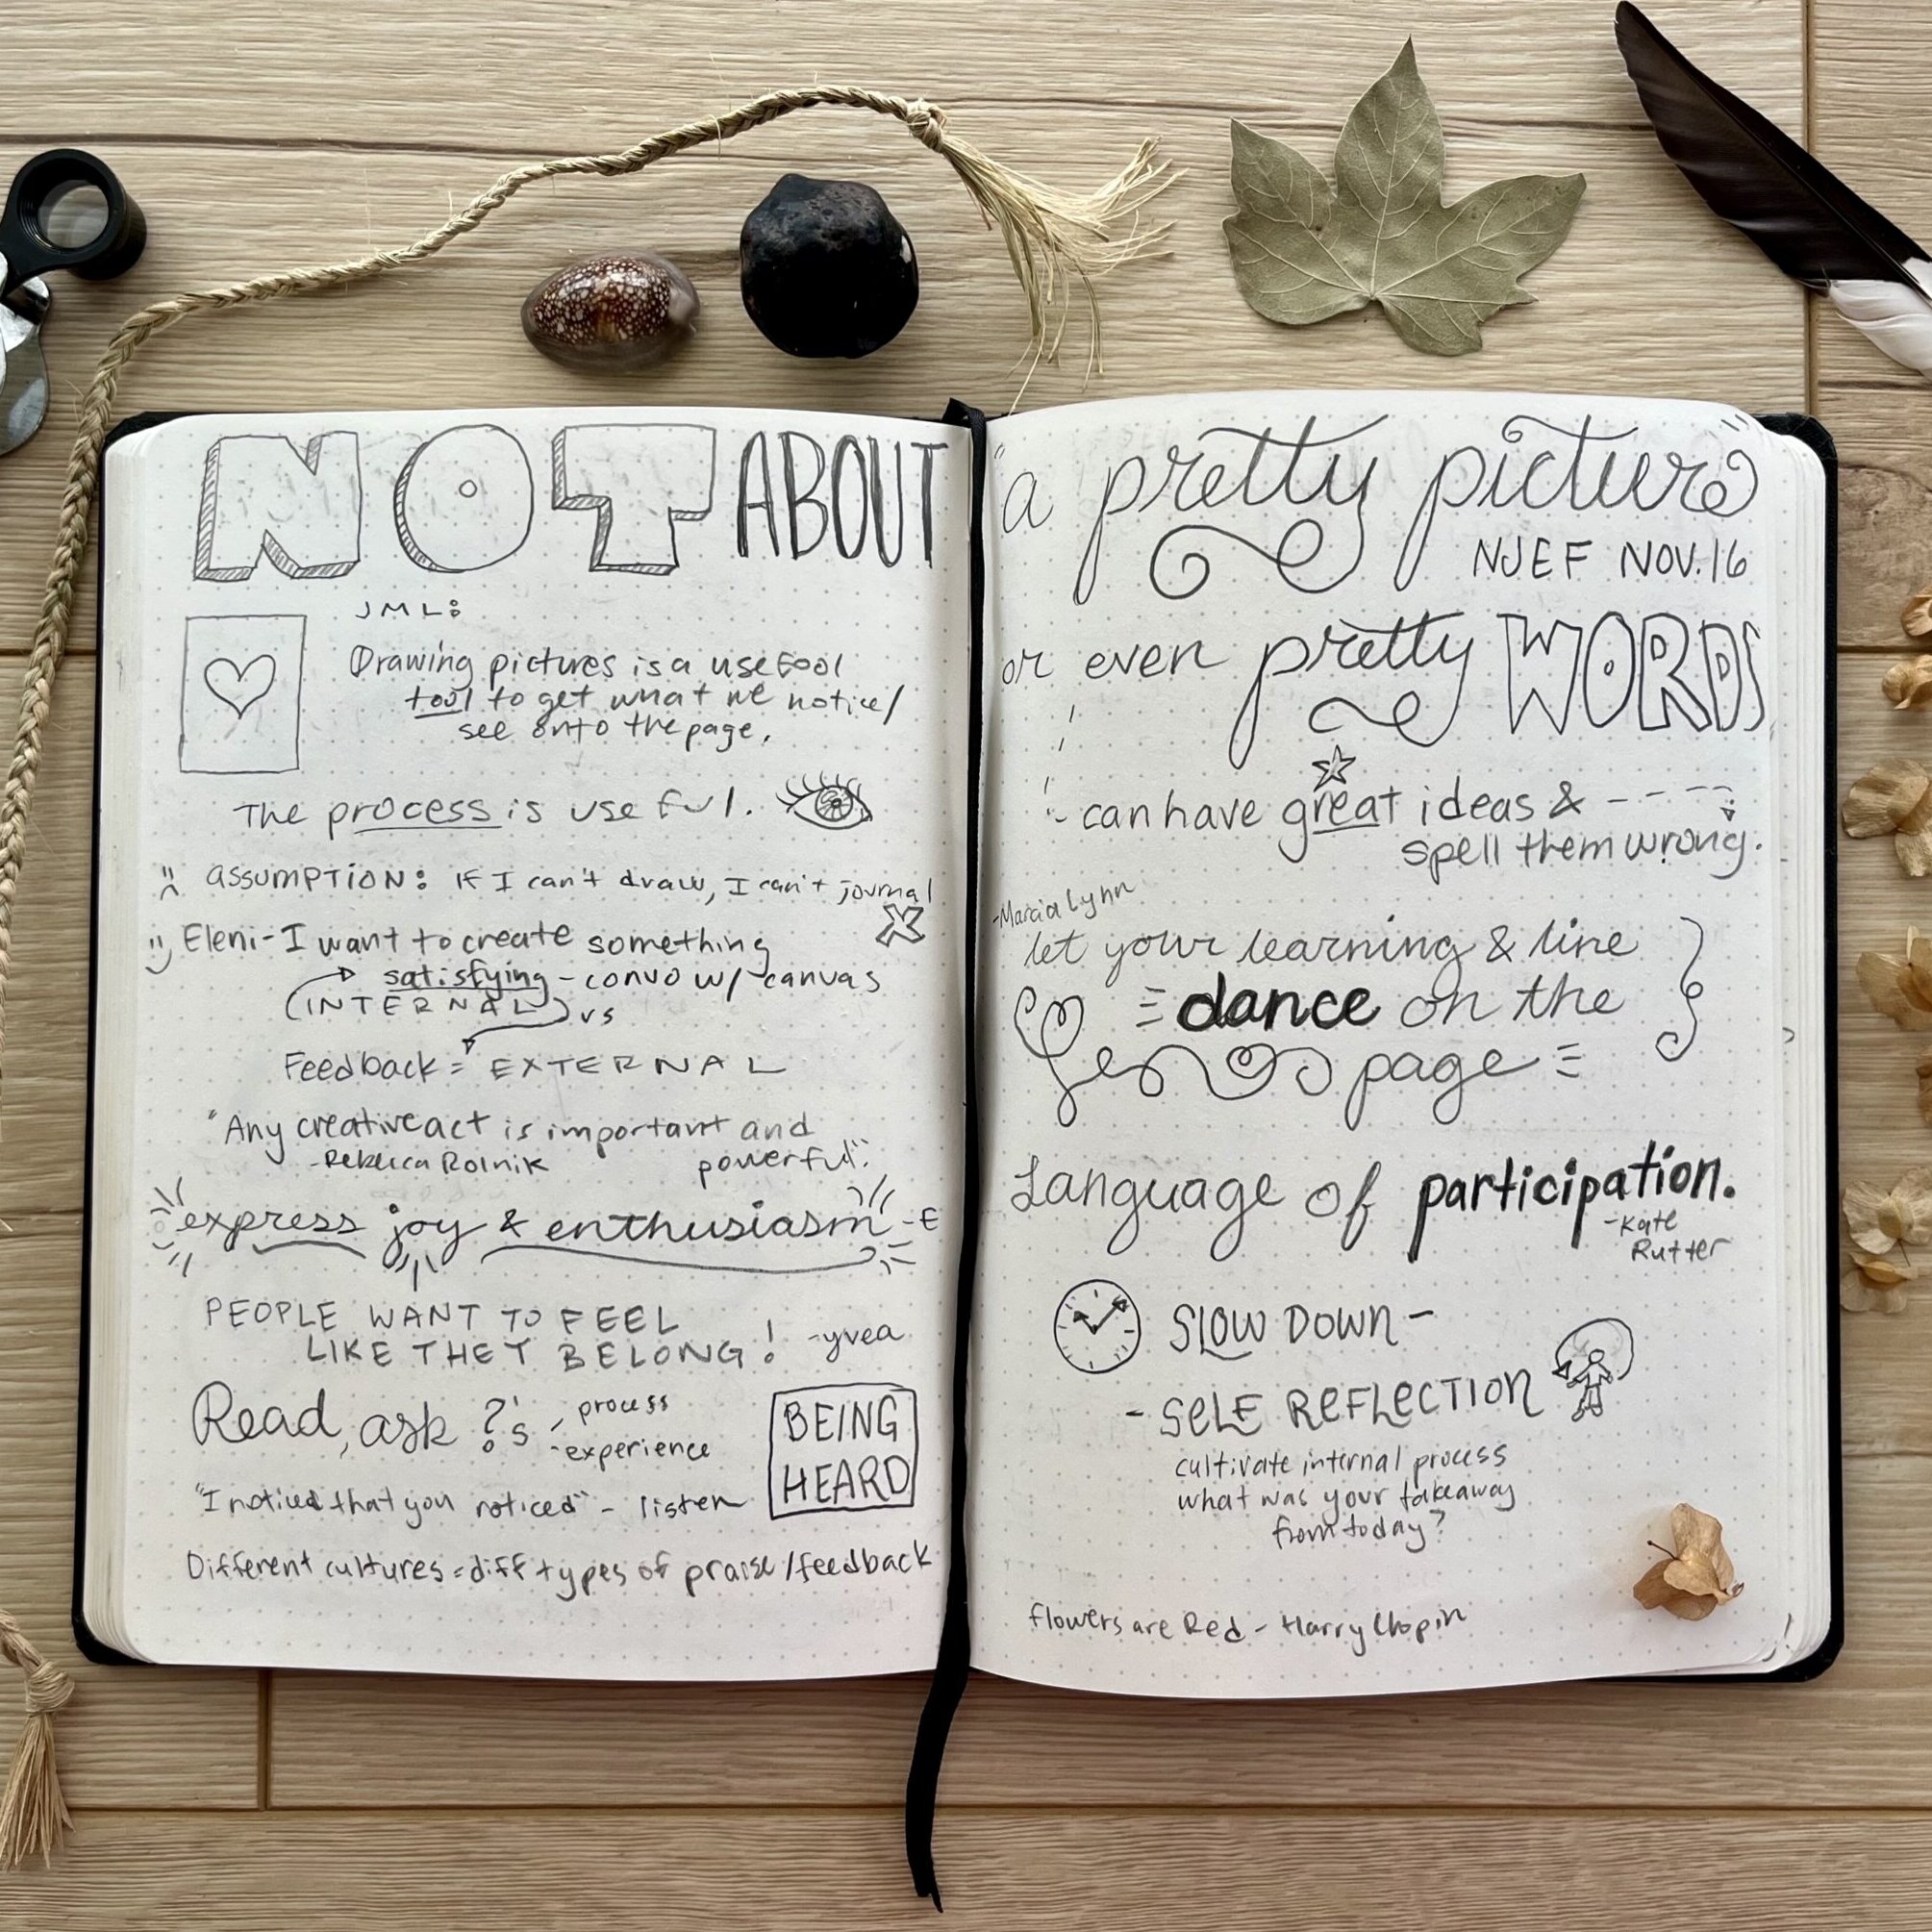 NOT ABOUT
JML:
Drawing pictures is a usefool
tool to get what we notice/
see onto the page.
The process is useful.
ASSUMPTION: If I can't draw, I can't journal
Eleni - I want to create something
satisfying - convo w/ canvas
(INTERNAL) vs
Feedback = EXTERNAL
"Any creative act is important and
powerful".
- Rebecca Rolnik
express joy & enthusiasm - E
PEOPLE WANT TO FEEL
LIKE THEY BELONG! - yvea
Read, ask ?'s - process
- experience
BEING
HEARD
"I noticed that you noticed" - listen
Different cultures = diff types of praise/feedback
"a pretty picture"
NJEF NOV. 16
or even pretty WORDS
can have great ideas &
spell them wrong.
- Marcia Lynn
let your learning & line
dance on the
page
Language of participation.
- Kate
Rutter
SLOW DOWN -
- SELF REFLECTION
cultivate internal process
what was your takeaway
from today?
Flowers are Red - Harry Chapin